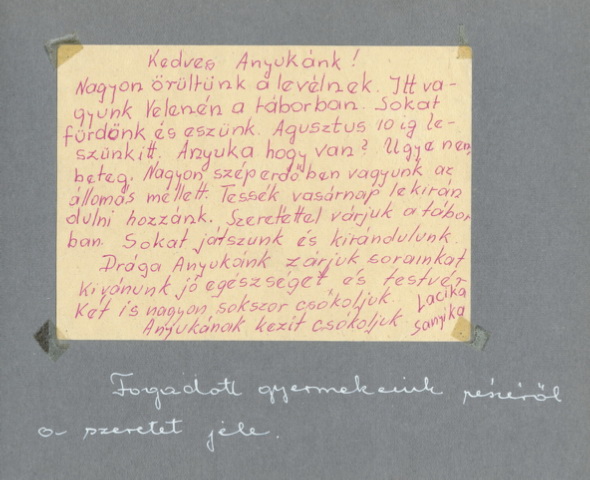 Kedves Anyukánk!
Nagyon örültünk a levélnek. Itt va-
gyunk Velenén a táborban. Sokat
fürdönk és eszünk. Agusztus 10 ig le-
szünkitt. Anyuka hogy van? Ugye nem
beteg. Nagyon szép erdő ben vagyunk az
állomás mellett. Tessék vasárnap le kirán
dulni hozzánk. Szeretettel várjuk a tábor
ban. Sokat játszunk és kirándulunk.
Drága Anyukánk zárjuk sorainkat
kivánunk jó egészséget és testvér
két is nagyon sokszor csókoljuk. Lacika
Anyukának kezit csókoljuk Sanyika
Fogadott gyermekeink részéről
a szeretet jele.